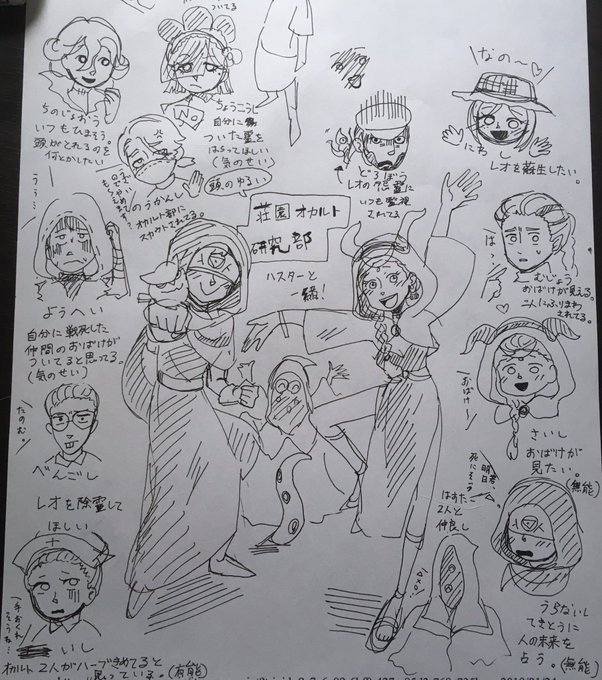 ついてる
ちのじょおう
いつもひまそう。
頭がとれるのを
何とかしたい
No
ちょうこうし
自分に
ついた霊を
はらってほしい
(気のせい)
のうかんし
オカルト部に
されてる。
(頭のゆるい)
荘園オカルト
研究部
ハスターと
一緒!
どろぼう
レオの怨霊に
いつも監視
されてる
なの〜♡
にわし
レオを蘇生したい。
うう…
ようへい
自分に戦死した
仲間のおばけが
ついてると思ってる。
(気のせい)
はっ
むじょう
おばけが見える。
二人にふりまわ
されてる。
おばけ
さいし
おばけが
見たい。
(無能)
たのむ。
べんごし
レオを除霊して
ほしい
明日、
死にそう
はすた
2人と
仲良し
うらないし
てきとうに
人の未来を
占う。(無能)
手おくれ
そうね…
いし
オカルト2人がハーブきめてると
思っている。(有能)